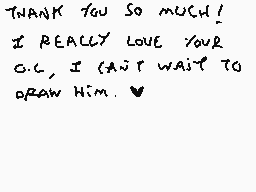 THANK YOU SO MUCH!
I REALLY LOVE YOUR
O.C, I CAN'T WAIT TO
DRAW HIM. ♥